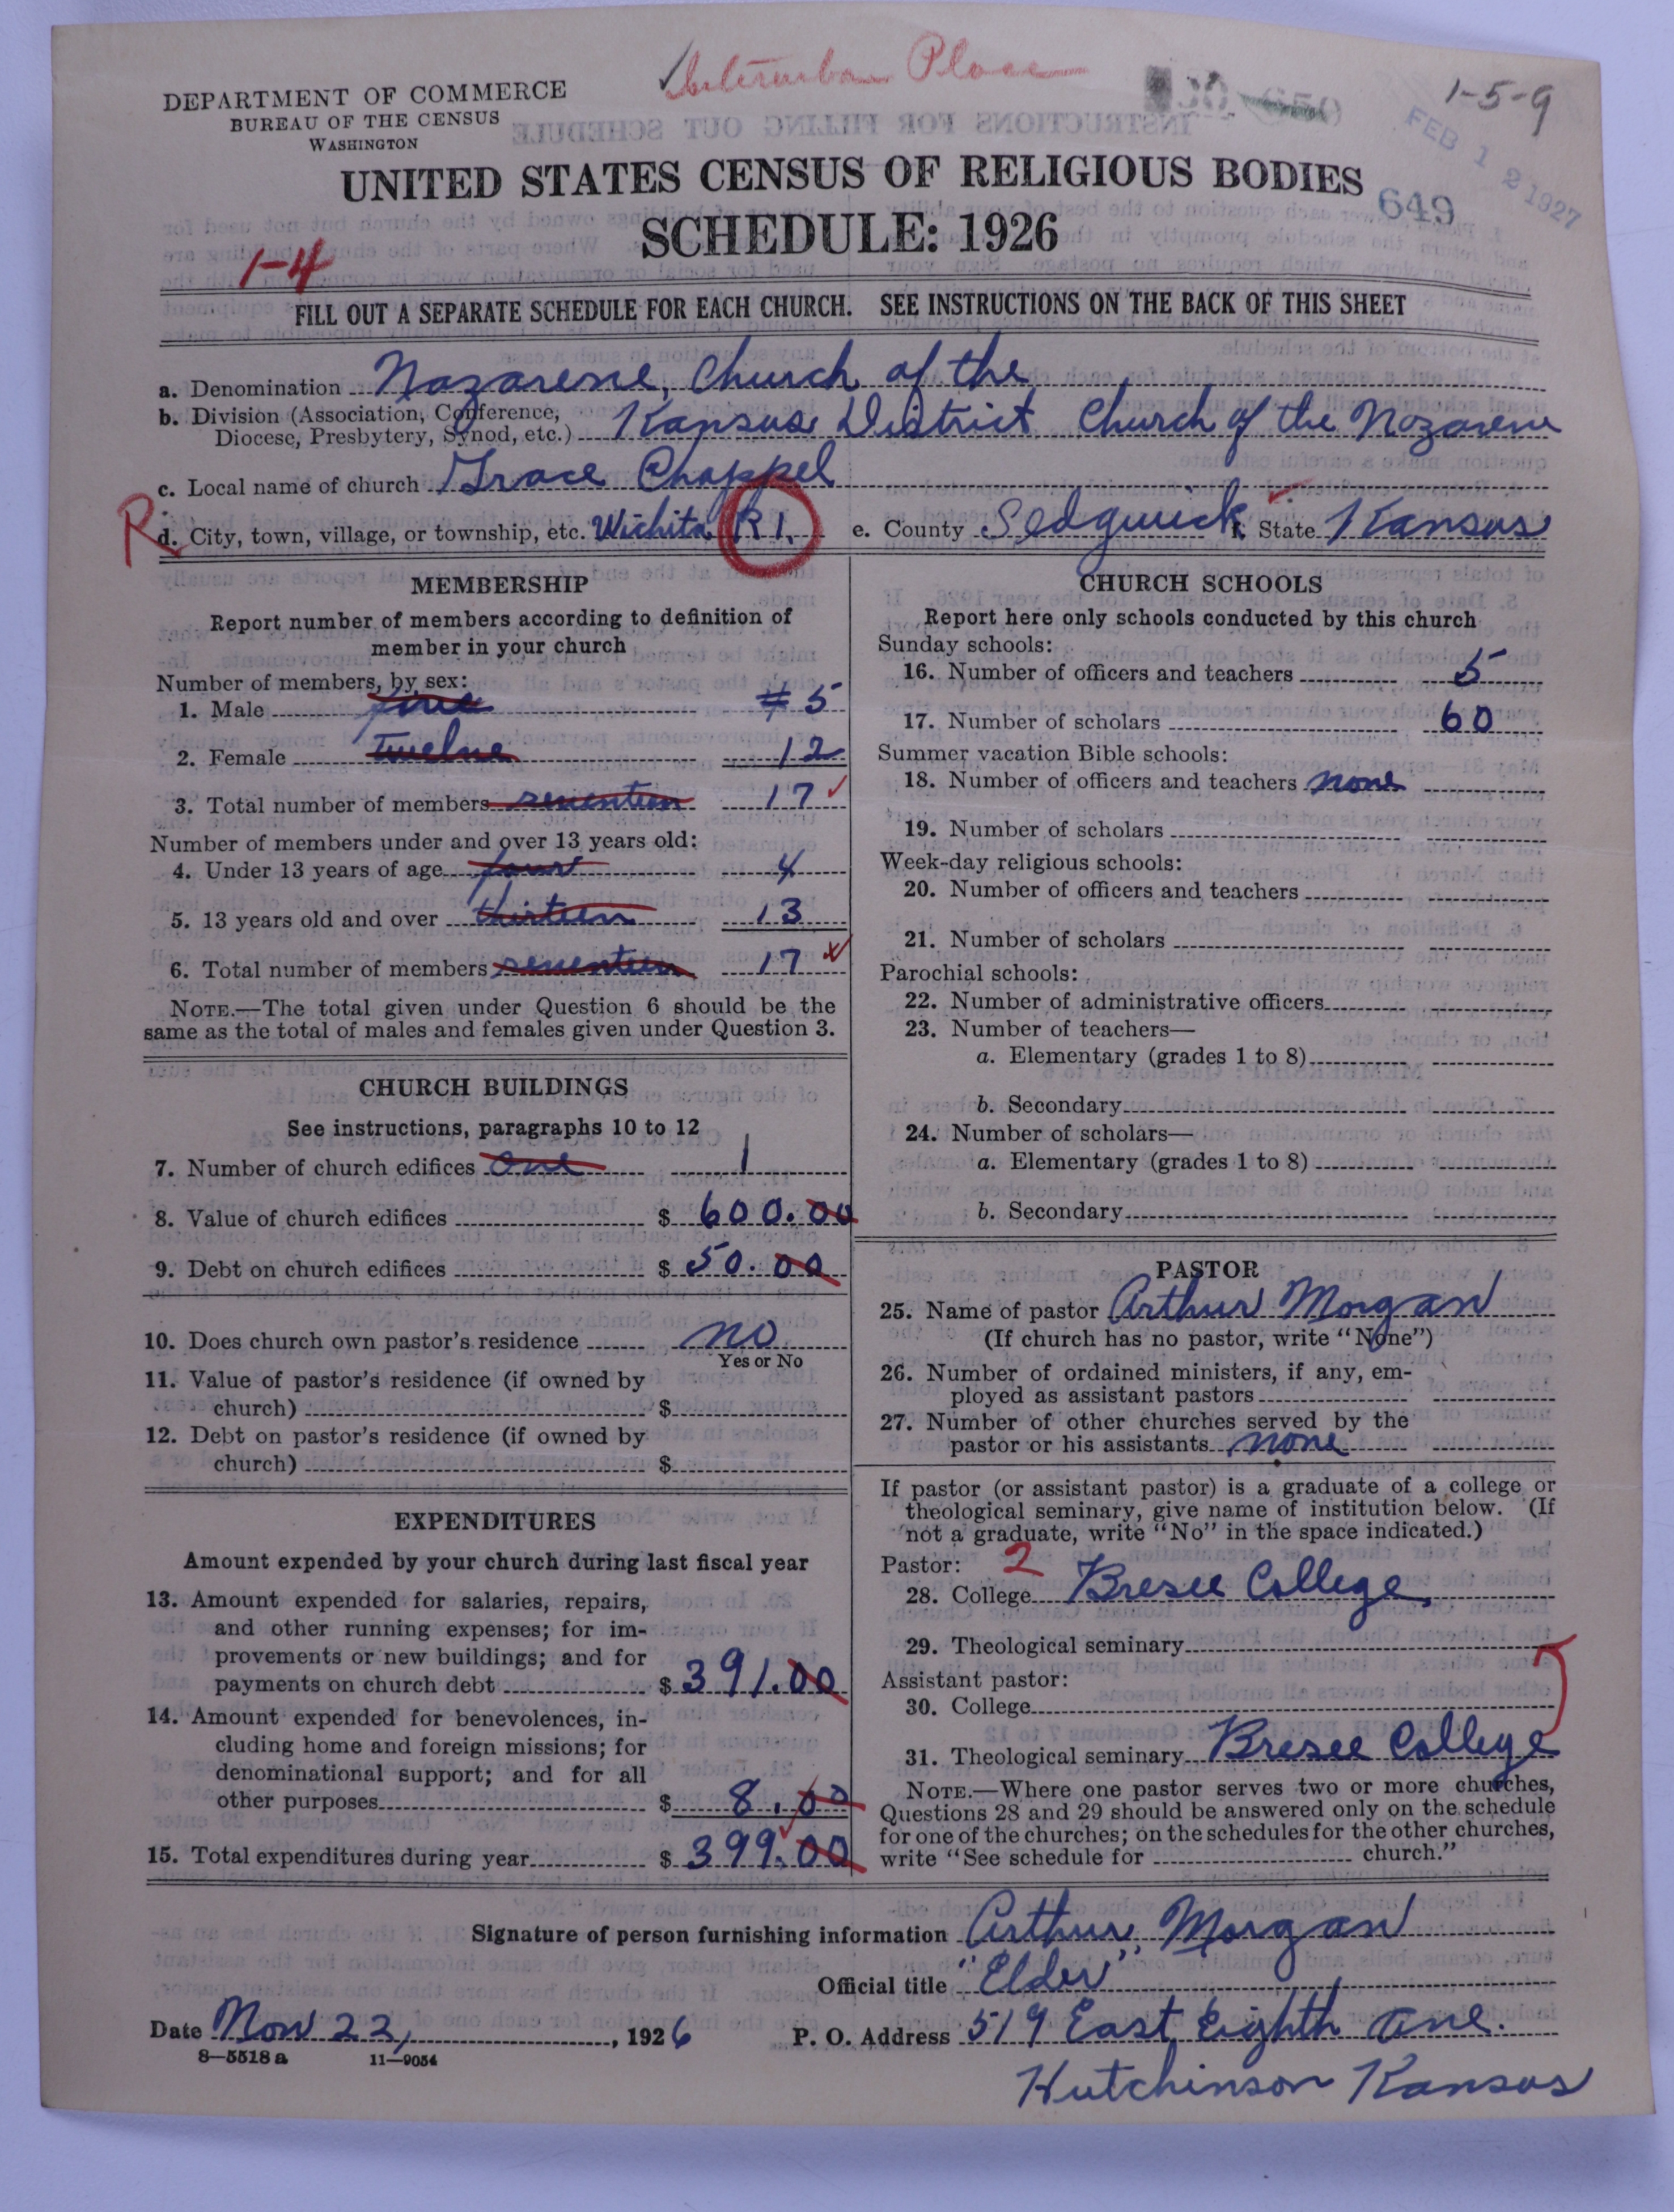 Place
1-5-9
DEPARTMENT OF COMMERCE
BUREAU OF THE CENSUS
WASHINGTON
FEB 12 1927
UNITED STATES CENSUS OF RELIGIOUS BODIES
649
SCHEDULE: 1926
1-4
FILL OUT A SEPARATE SCHEDULE FOR EACH CHURCH. SEE INSTRUCTIONS ON THE BACK OF THIS SHEET
a. Denomination Nazarene, Church of the
b. Division (Association, Conference, Diocese, Presbytery, Synod, etc.) Kansas District Church of the Nazarene
c. Local name of church Grace Chappel
R d. City, town, village, or township, etc. Wichita R 1. e. County Sedgwick f. State Kansas
MEMBERSHIP
Report number of members according to definition of
member in your church
Number of members, by sex:
1. Male five # 5
2. Female Twelve 12
3. Total number of members seventeen 17
Number of members under and over 13 years old:
4. Under 13 years of age four 4
5. 13 years old and over thirteen 13
6. Total number of members seventeen 17
NOTE.—The total given under Question 6 should be the
same as the total of males and females given under Question 3.
CHURCH BUILDINGS
See instructions, paragraphs 10 to 12
7. Number of church edifices one 1
8. Value of church edifices $ 600.00
9. Debt on church edifices $ 50.00
10. Does church own pastor's residence no
Yes or No
11. Value of pastor's residence (if owned by
church) $
12. Debt on pastor's residence (if owned by
church) $
EXPENDITURES
Amount expended by your church during last fiscal year
13. Amount expended for salaries, repairs,
and other running expenses; for im-
provements or new buildings; and for
payments on church debt $ 391.00
14. Amount expended for benevolences, in-
cluding home and foreign missions; for
denominational support; and for all
other purposes $ 8.00
15. Total expenditures during year $ 399.00
CHURCH SCHOOLS
Report here only schools conducted by this church
Sunday schools:
16. Number of officers and teachers 5
17. Number of scholars 60
Summer vacation Bible schools:
18. Number of officers and teachers none
19. Number of scholars
Week-day religious schools:
20. Number of officers and teachers
21. Number of scholars
Parochial schools:
22. Number of administrative officers
23. Number of teachers—
a. Elementary (grades 1 to 8)
b. Secondary
24. Number of scholars—
a. Elementary (grades 1 to 8)
b. Secondary
PASTOR
25. Name of pastor Arthur Morgan
(If church has no pastor, write "None")
26. Number of ordained ministers, if any, em-
ployed as assistant pastors
27. Number of other churches served by the
pastor or his assistants none
If pastor (or assistant pastor) is a graduate of a college or
theological seminary, give name of institution below. (If
not a graduate, write "No" in the space indicated.)
Pastor: 2
28. College Bresee College
29. Theological seminary
Assistant pastor:
30. College
31. Theological seminary Bresee College
NOTE.—Where one pastor serves two or more churches,
Questions 28 and 29 should be answered only on the schedule
for one of the churches; on the schedules for the other churches,
write "See schedule for church."
Signature of person furnishing information Arthur Morgan
Official title "Elder"
Date Nov 22, 1926 P. O. Address 519 East Eighth Ave.
8—5518 a 11—9054
Hutchinson Kansas